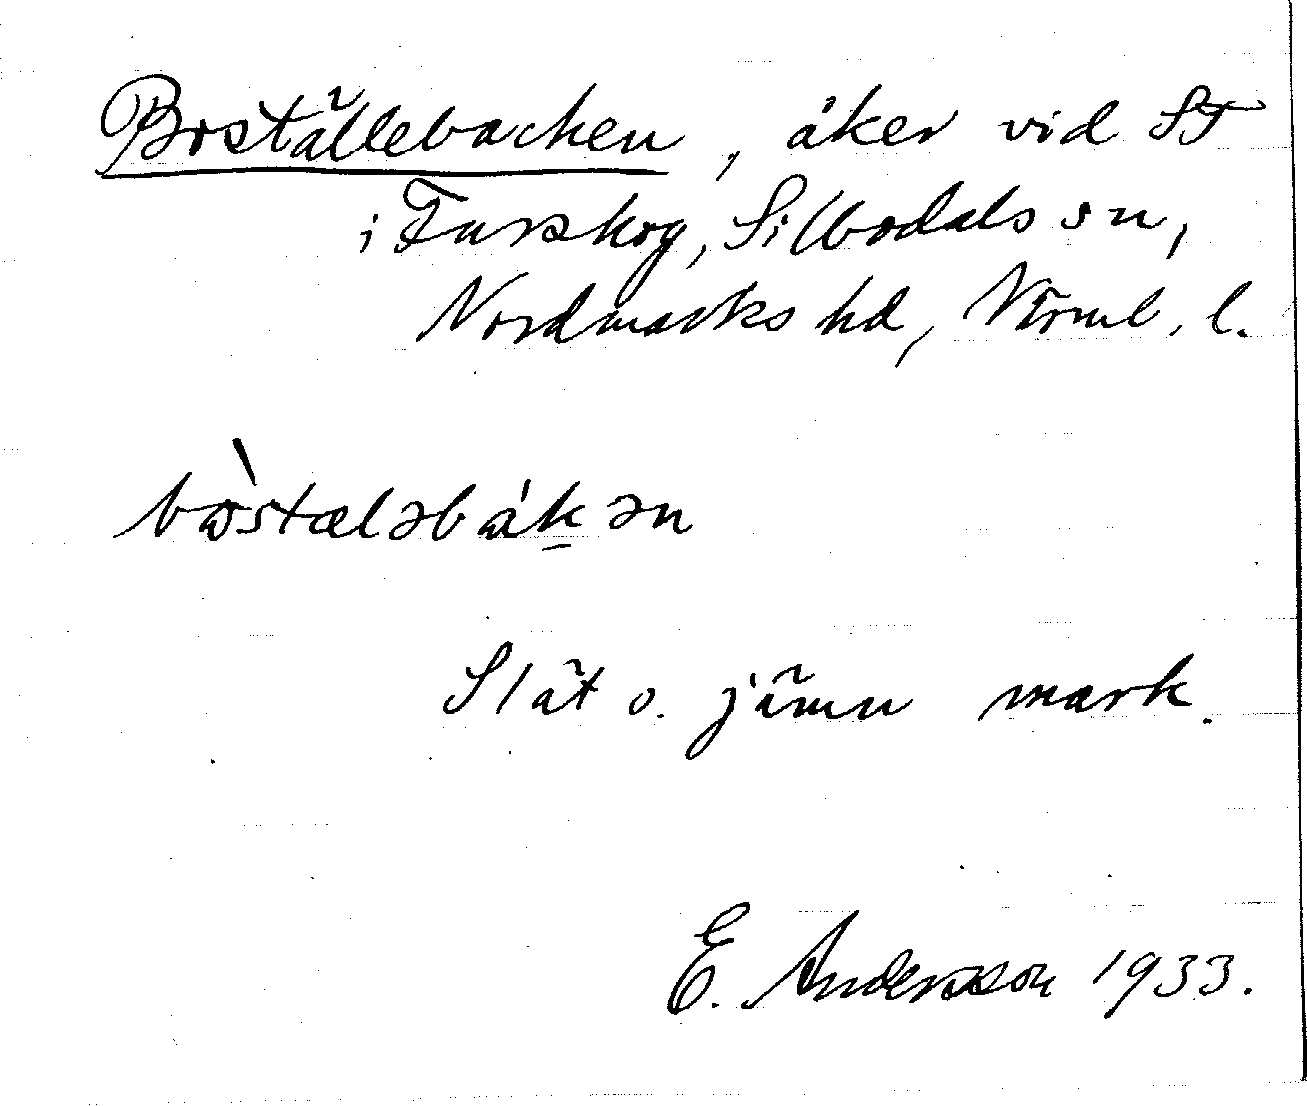 Boställebacken, åker vid ST
i Furskog, Silbodals sn,
Nordmarks hd, Värml. l.
bòstæləbákən
Slät o. jämn mark.
E. Andersson 1933.